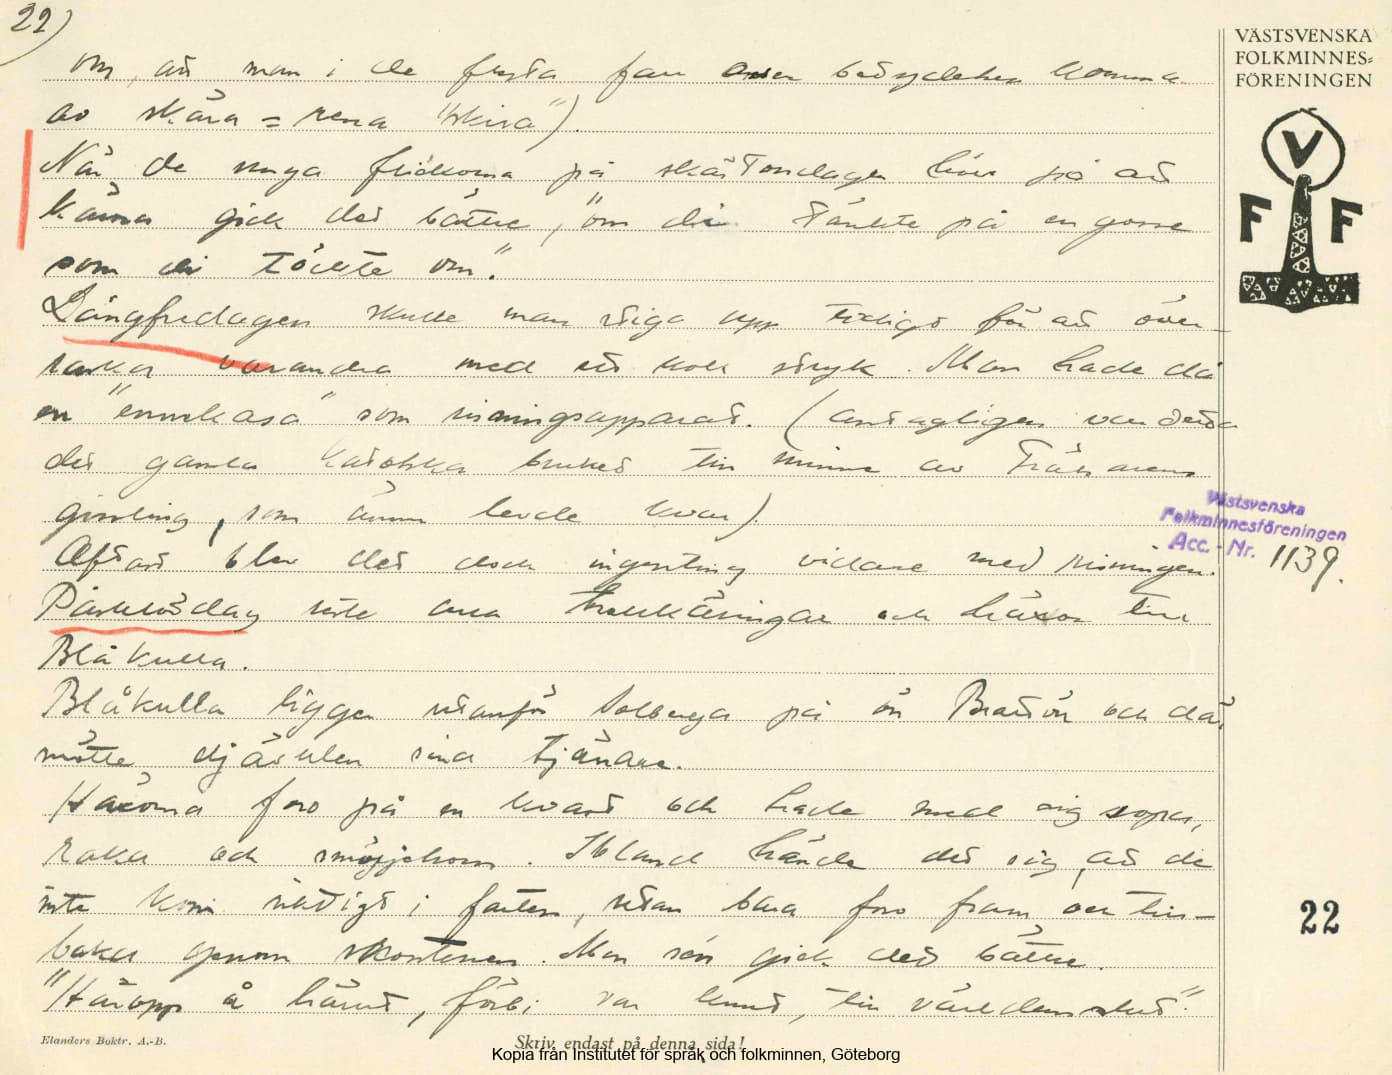 22)
VÄSTSVENSKA
FOLKMINNES=
FÖRENINGEN
om, att man i de flesta fall anser betydelsen komma
av skära = rena "skira").
När de unga flickorna på skärtorsdagen höll på att
kärna gick det bättre, "om di tänkte på en gosse
som di töckte om".
Långfredagen skulle man stiga upp tidigt för att över-
raska varandra med ett kok stryk. Man hade då
en "ennekasa" som risningsapparat. (antagligen var detta
det gamla katolska bruket till minne av Frälsarens
gissling, som ännu levde kvar).
Oftast blev det dock ingenting vidare med risningen.
Påsklördag åkte alla trollkäringar och häxor till
Blåkulla.
Blåkulla ligger utanför Solberga på ön Brattön och där
mötte djävulen sina tjänare.
Häxorna foro på en kvast och hade med sig sopa,
raka och smörjehorn. Ibland hände det sig, att de
inte kom riktigt i farten, utan bara foro fram och till-
baka genom skorsten. Men sen gick det bättre.
"Här opp å härut, förbi var knut, till världens slut".
V
F F
Västsvenska
Folkminnesföreningen
Acc. - Nr. 1139.
22
Elanders Boktr. A.-B.
Skriv endast på denna sida!
Kopia från Institutet för språk och folkminnen, Göteborg